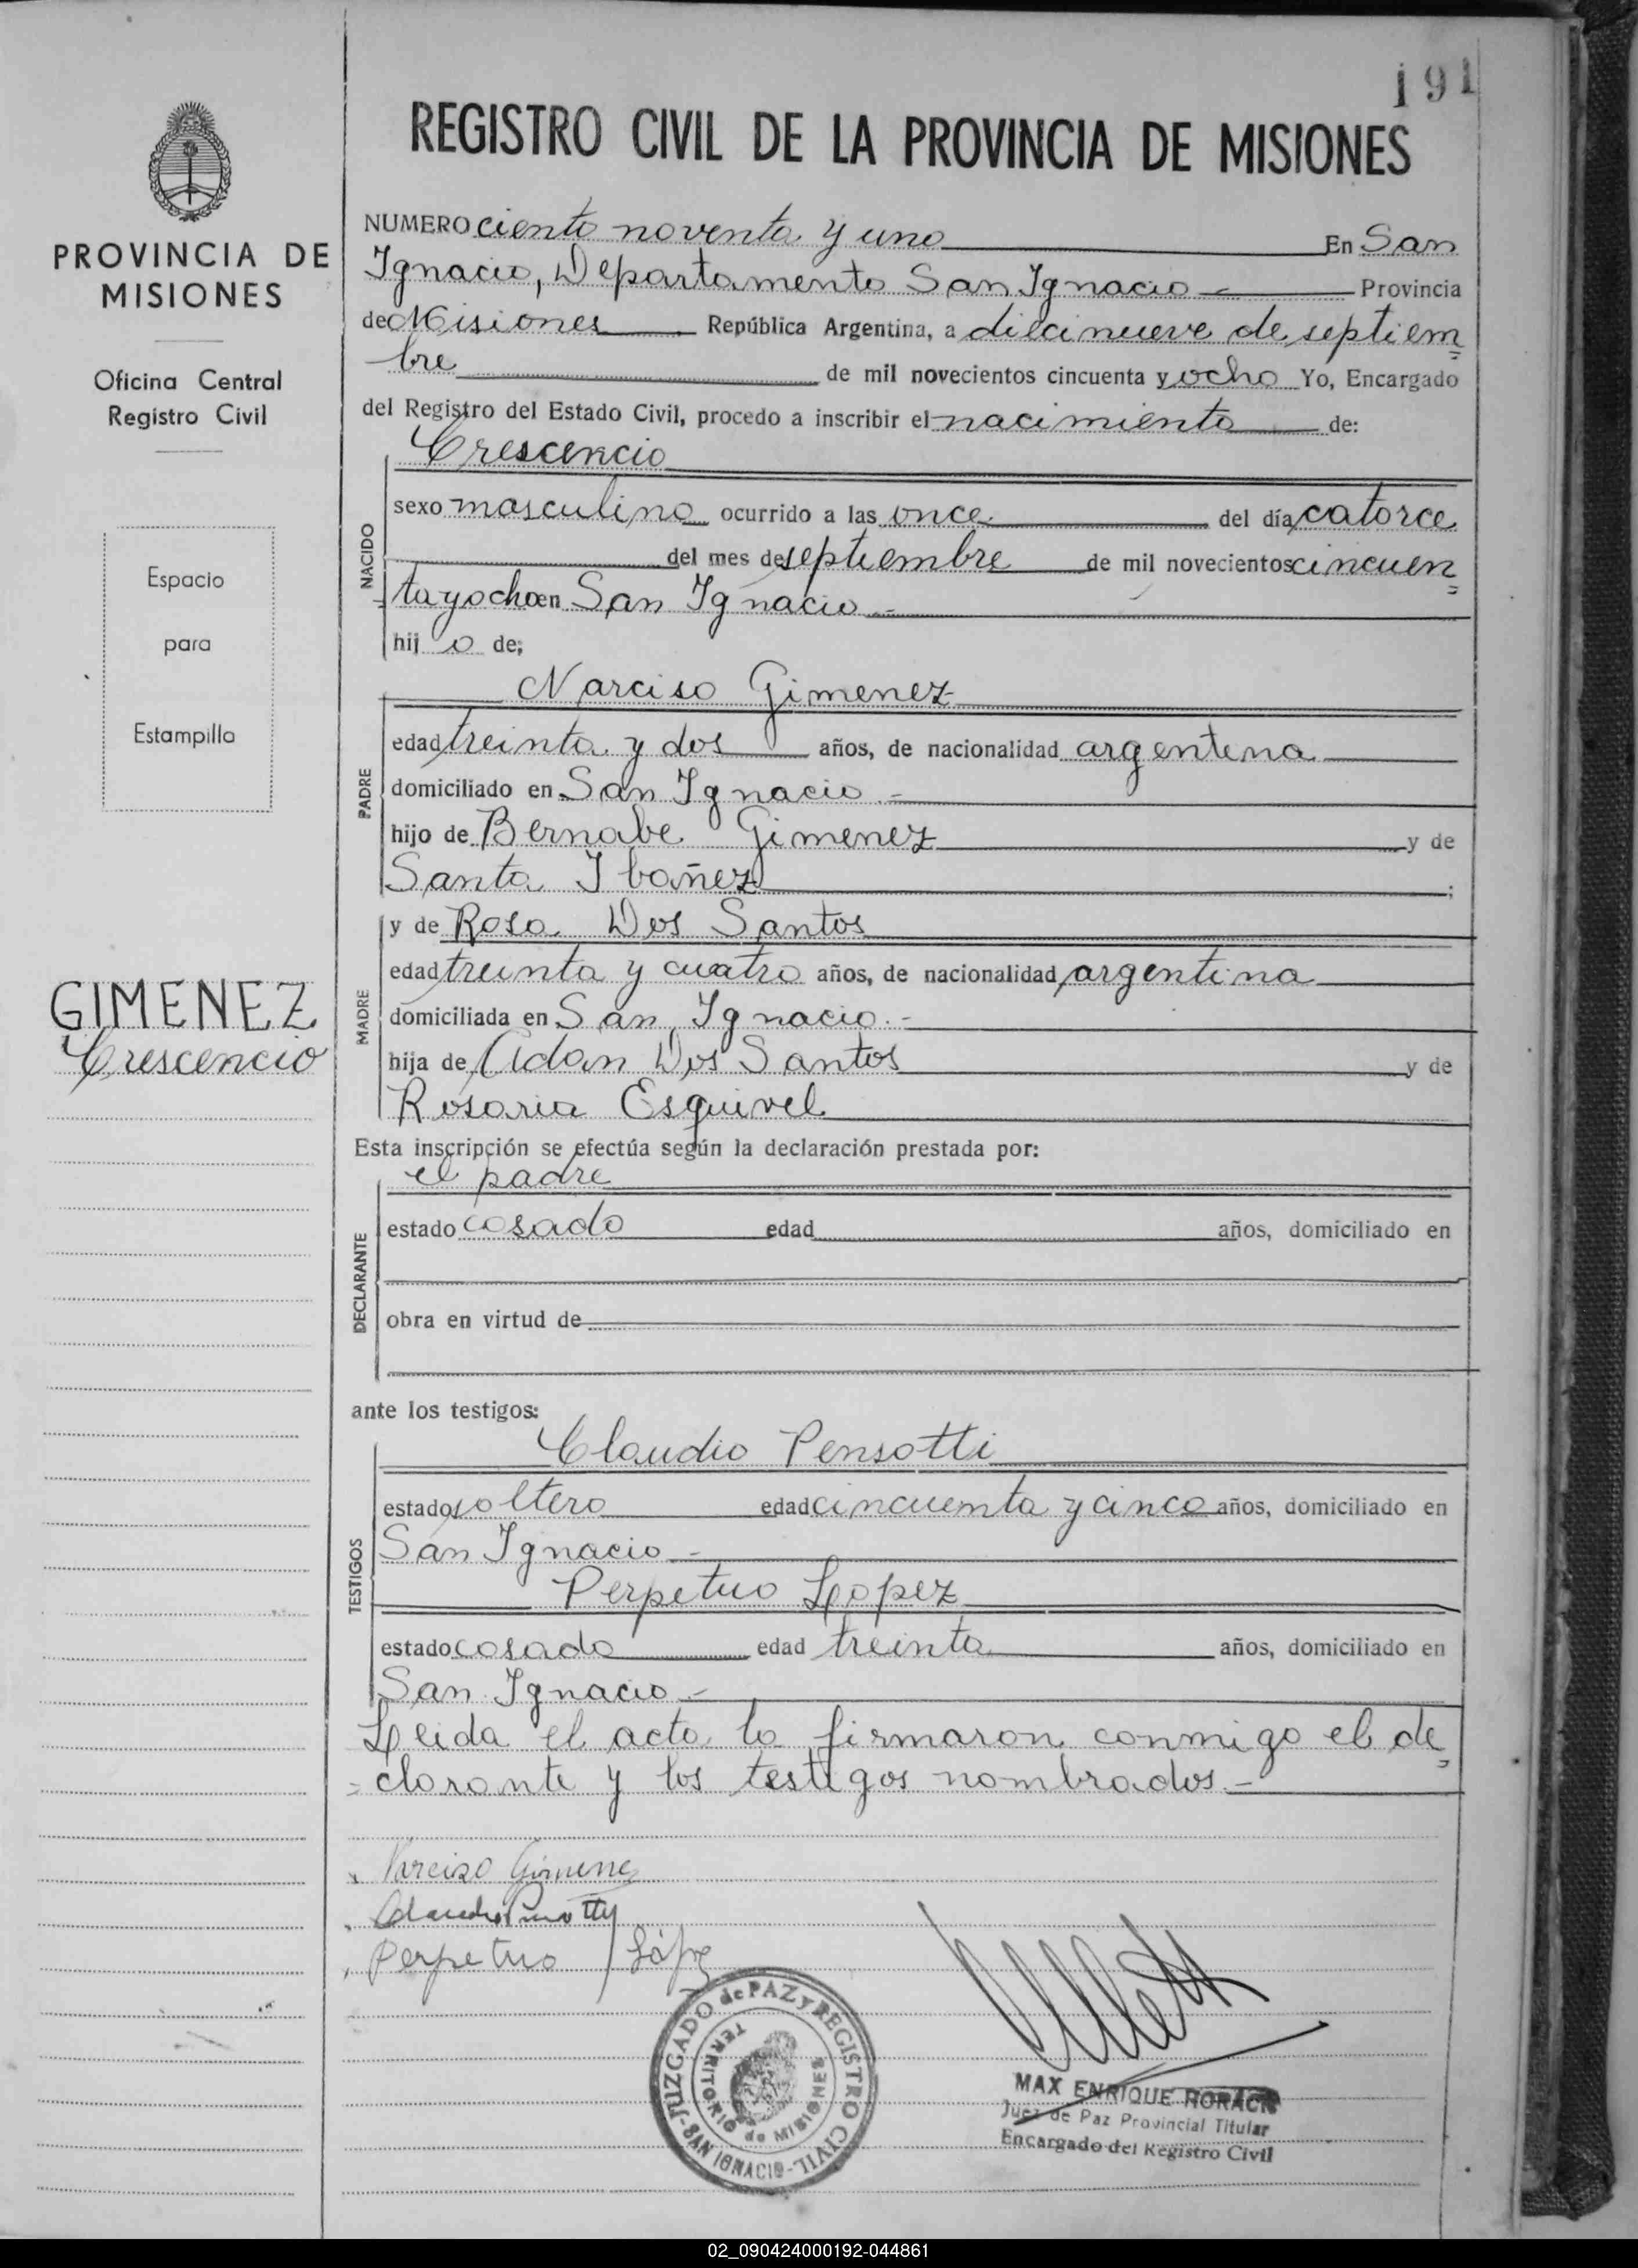 191
REGISTRO CIVIL DE LA PROVINCIA DE MISIONES
PROVINCIA DE
MISIONES
Oficina Central
Registro Civil
Espacio
para
Estampilla
GIMENEZ
Crescencio
NUMERO ciento noventa y uno En San
Ignacio, Departamento San Ignacio - Provincia
de Misiones República Argentina, a diecinueve de septiem
bre de mil novecientos cincuenta y ocho Yo, Encargado
del Registro del Estado Civil, procedo a inscribir el nacimiento de:
NACIDO
Crescencio
sexo masculino ocurrido a las once del día catorce
del mes de septiembre de mil novecientos cincuen
ta y ocho en San Ignacio.-
hij o de;
PADRE
Narciso Gimenez
edad treinta y dos años, de nacionalidad argentina
domiciliado en San Ignacio.-
hijo de Bernabe Gimenez y de
Santa Ibañez ;
MADRE
y de Rosa Dos Santos
edad treinta y cuatro años, de nacionalidad argentina
domiciliada en San Ignacio.-
hija de Adan Dos Santos y de
Rosaria Esquivel
Esta inscripción se efectúa según la declaración prestada por:
DECLARANTE
el padre
estado casado edad años, domiciliado en
obra en virtud de
ante los testigos:
TESTIGOS
Claudio Pensotti
estado soltero edad cincuenta y cinco años, domiciliado en
San Ignacio.-
Perpetuo Lopez
estado casado edad treinta años, domiciliado en
San Ignacio.-
Leida el acta la firmaron conmigo el de
clarante y los testigos nombrados.-
Narciso Gimenez
Perpetuo López
JUZGADO de PAZ y REGISTRO CIVIL - SAN IGNACIO -
TERRITORIO de MISIONES
MAX ENRIQUE
Juez de Paz Provincial Titular
Encargado del Registro Civil
02_090424000192-044861